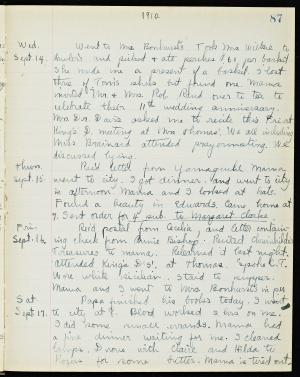 1910
87
Wed.
Sept. 14.
Want to Mrs. Bonhurst's. Took Mrs. Wickse to
and picked & ate peaches $1.60 per basket
She made me a present of a basket. I lost
three of Tom's shells but found one. Mama
invited Mr. & Mrs. Rob Reid over to tea to
celebrate their 11th wedding anniversary.
Mrs. Dr. Davis asked me to recite this Fri. at
King's D. meeting at Mrs. Thomas'. We all including
Miss Brainard attended prayermeeting. We
discussed lying.
Thurs.
Sept. 15.
Rec'd letter from Yamaguchi. Mama
went to city. I got dinner and went to city
in afternoon. Mama and I looked at hats.
Found a beauty in Edwards. Came home at
7. Sent order for sub. to Margaret Clarke.
Fri.
Sept. 16.
Rec'd postal from Celia, and letter contain-
ing check from Annie Bishop. Recited
Treasures to mama. Rehearsed it last night,
attended King's D's. at Thomas'.
Wore white. Stayed to supper.
Mama and I went to Mrs. Bonhurst's in eve.
Sat
Sept. 17.
Papa finished his books today. I went
to city at 9. Blood worked 2 hrs on me.
I did some small errands. Mama had
a fine dinner waiting for me. I cleaned
lamps. Drove with Claire and Hilda to
for some butter. Mama is tired out.